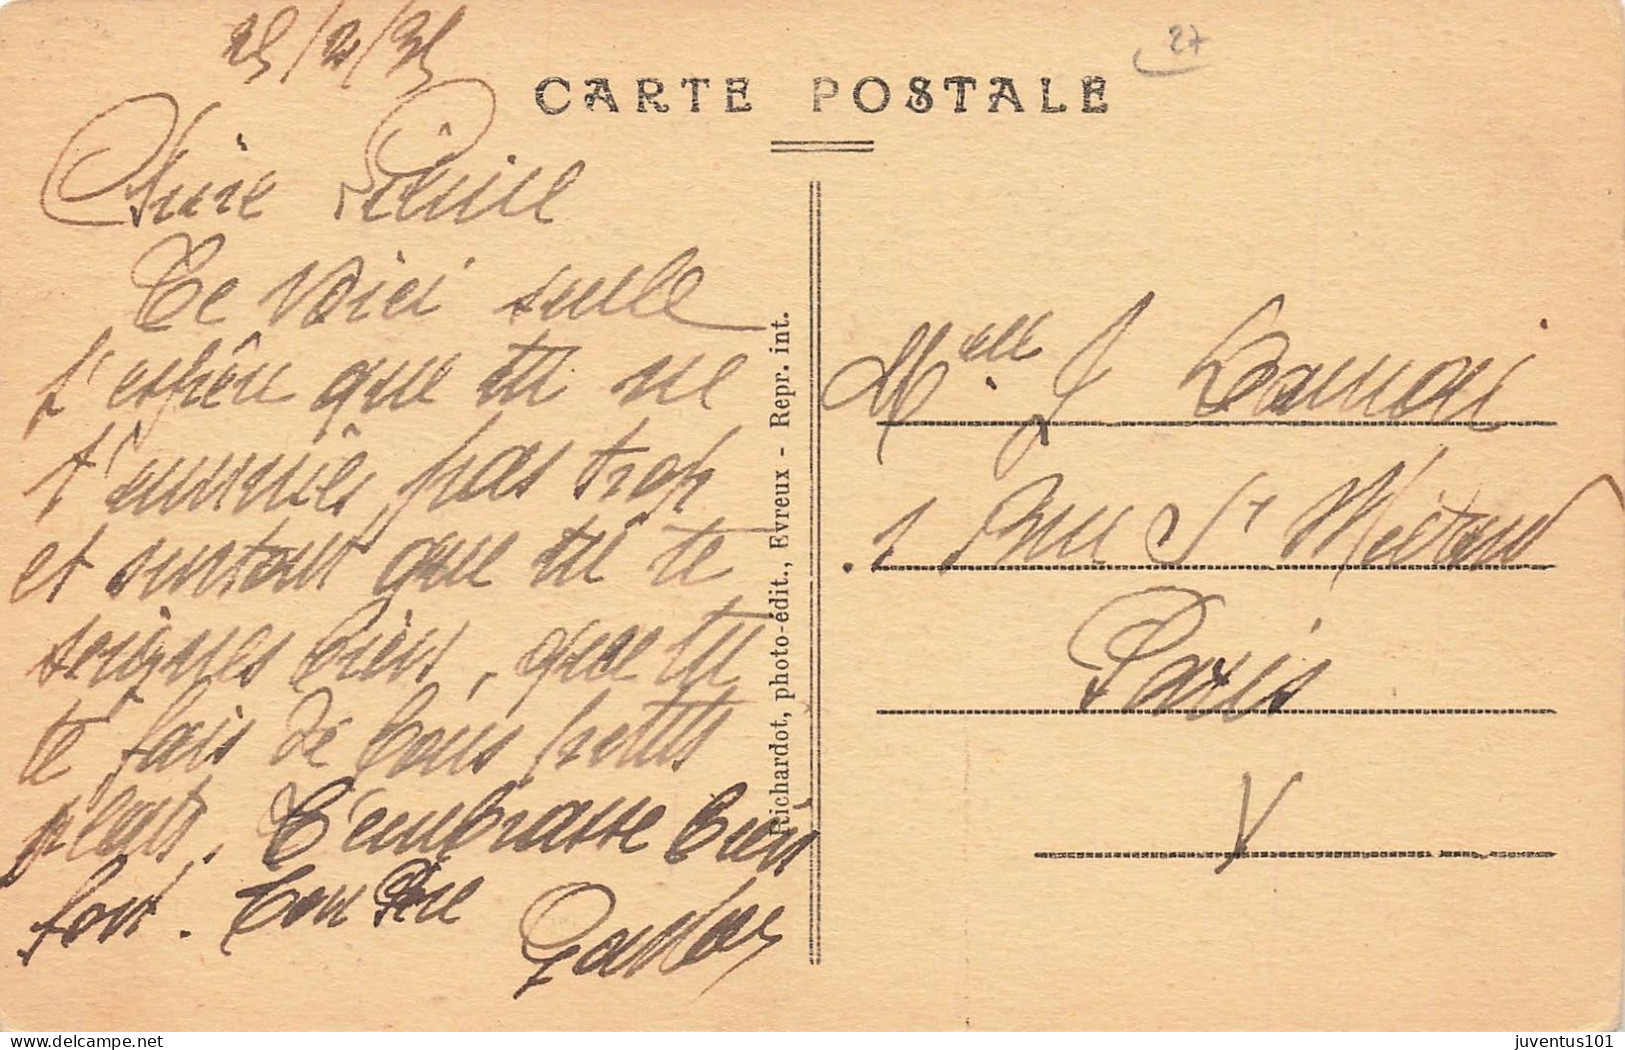 25/2/35
27
CARTE POSTALE
Chère
Te voici seule
j'espère que tu ne
t'ennuies pas trop
et surtout que tu te
soignes bien, que tu
te fais de bons petits
plats. T'embrasse bien
fort. Ton Père
Richardot, photo-édit., Evreux - Repr. int.
Melle J
1 Rue St
Paris
V
delcampe.net
juventus101